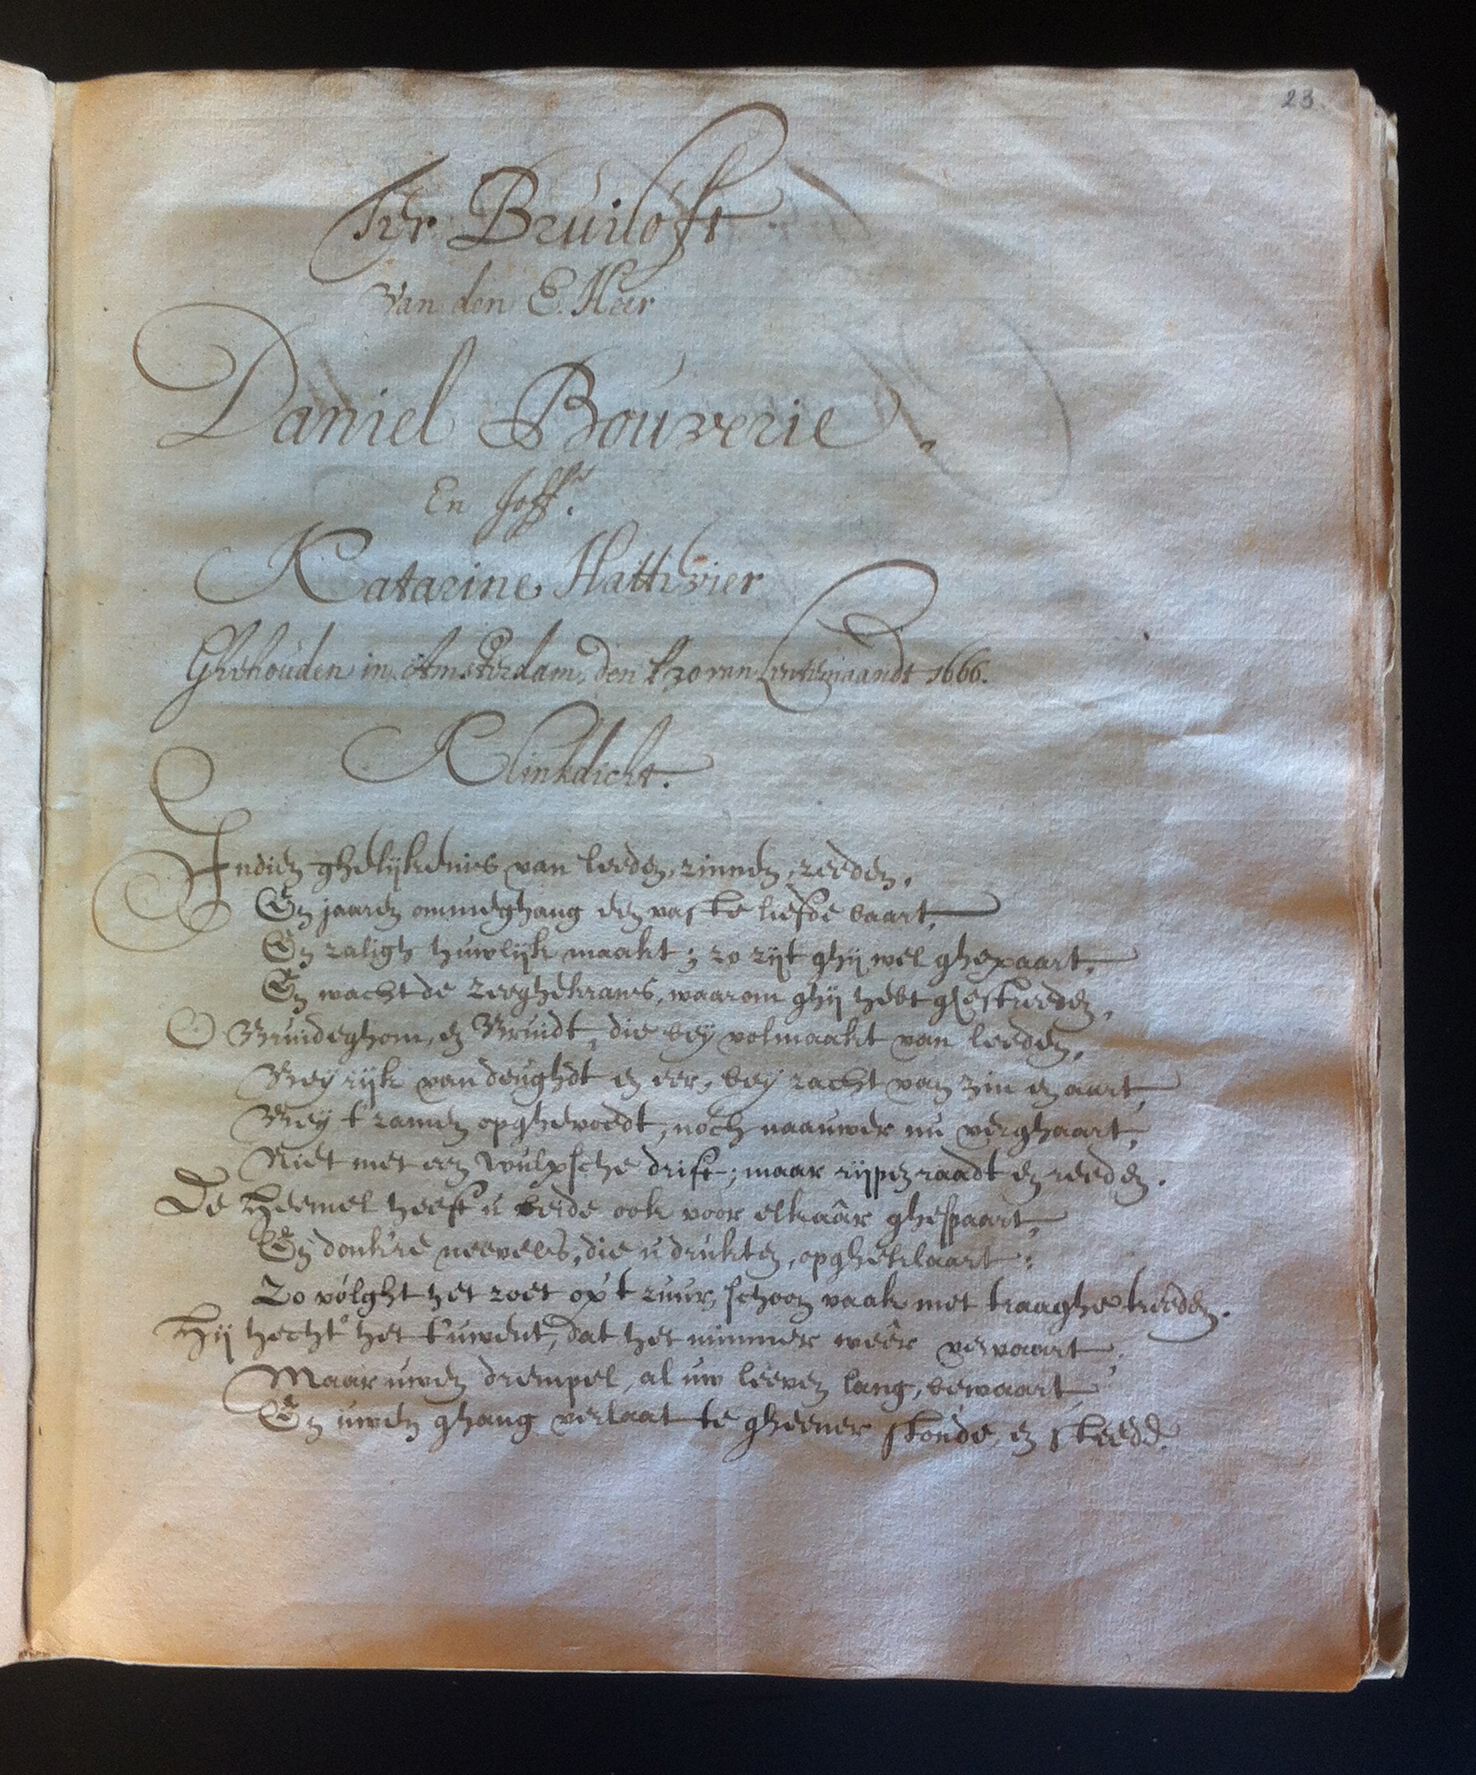 23.
Ter Bruiloft
Van den E. Heer
Daniel Bouverie,
En Joffr.
Katarine Hattvier
Ghehouden in Amsterdam, den van Lentemaandt 1666.
Klinkdicht.
Indien ghelijkenis van leeden, zinnen, reeden,
En jaaren ommeghang een vaste liefde baart,
En zaligh huwlijk maakt; zo zijt ghij wel ghepaart,
En wacht de zeeghekrans, waarom ghij hebt ghestreeden,
O Bruideghom, en Bruidt, die bey volmaakt van leeden,
Bey rijk van deughdt en eer, bey zacht van zin en aart,
Bey t'zamen opghevoedt, noch naauwer nu verghaart,
Niet met een wulpsche drift; maar rijpen raadt en reeden.
De Heemel heeft u beide ook voor elkaâr ghespaart,
En donkre neevels, die u drukten, opgheklaart:
Zo volght het zoet op't zuur, schoon vaak met traaghe treeden.
Hij hecht' het t'uwent, dat het nimmer weêr vervaart,
Maar uwen drempel, al uw leeven lang, bewaart,
En uwen ghang verlaat te gheener stonde, en steedē.